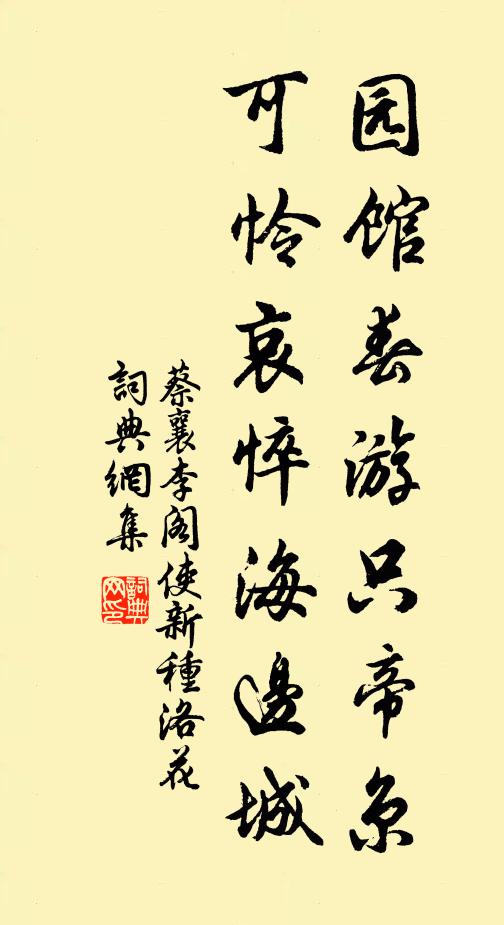 园馆春游只帝京
可怜哀悴海邊城
蔡襄李阁使新種洛花
詞典網集
詞典网印